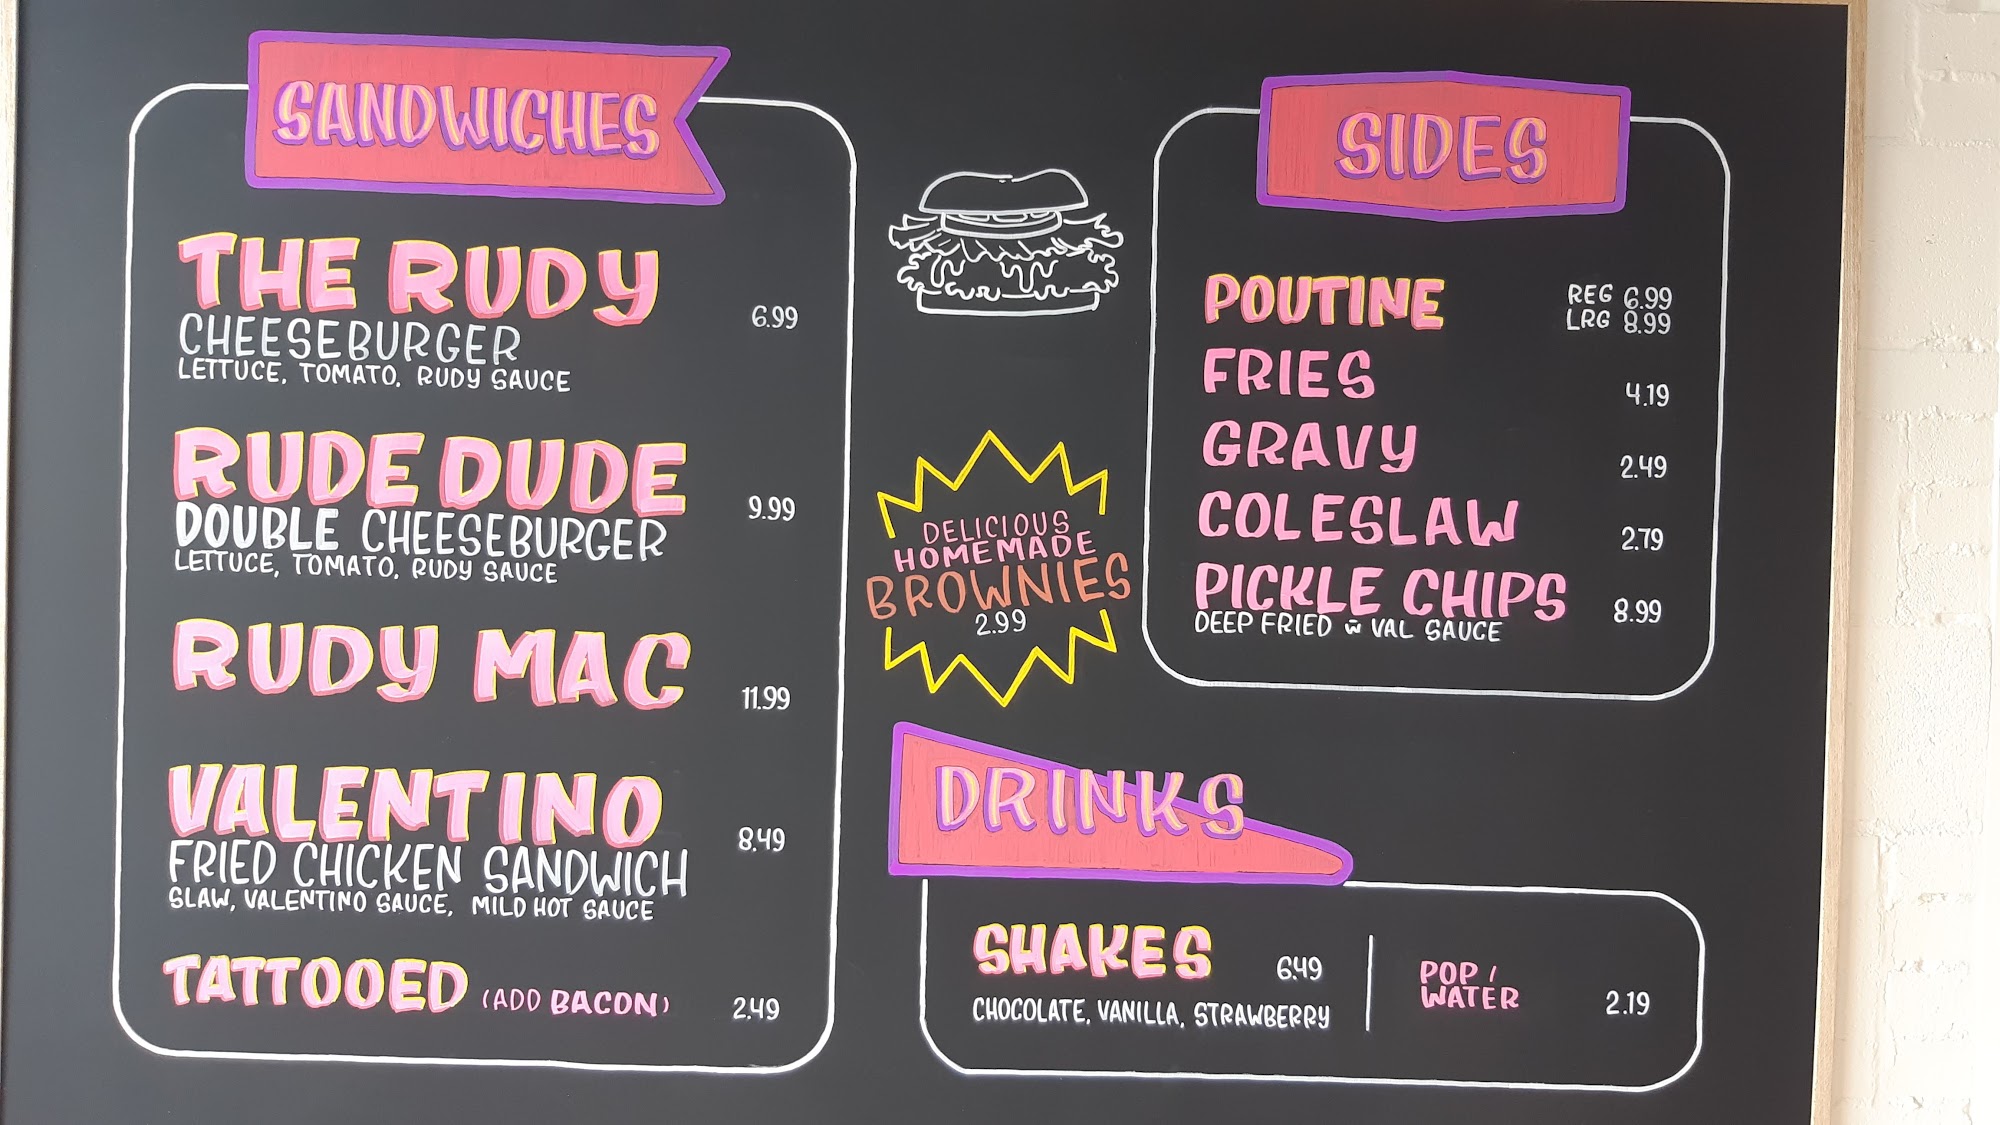 SANDWICHES
THE RUDY
6.99
CHEESEBURGER
LETTUCE, TOMATO, RUDY SAUCE
RUDE DUDE
9.99
DOUBLE CHEESEBURGER
LETTUCE, TOMATO, RUDY SAUCE
RUDY MAC
11.99
VALENTINO
8.49
FRIED CHICKEN SANDWICH
SLAW, VALENTINO SAUCE, MILD HOT SAUCE
TATTOOED (ADD BACON) 2.49
DELICIOUS
HOMEMADE
BROWNIES
2.99
SIDES
POUTINE REG 6.99
LRG 8.99
FRIES 4.19
GRAVY 2.49
COLESLAW 2.79
PICKLE CHIPS 8.99
DEEP FRIED w̄ VAL SAUCE
DRINKS
SHAKES 6.49
CHOCOLATE, VANILLA, STRAWBERRY
POP /
WATER 2.19